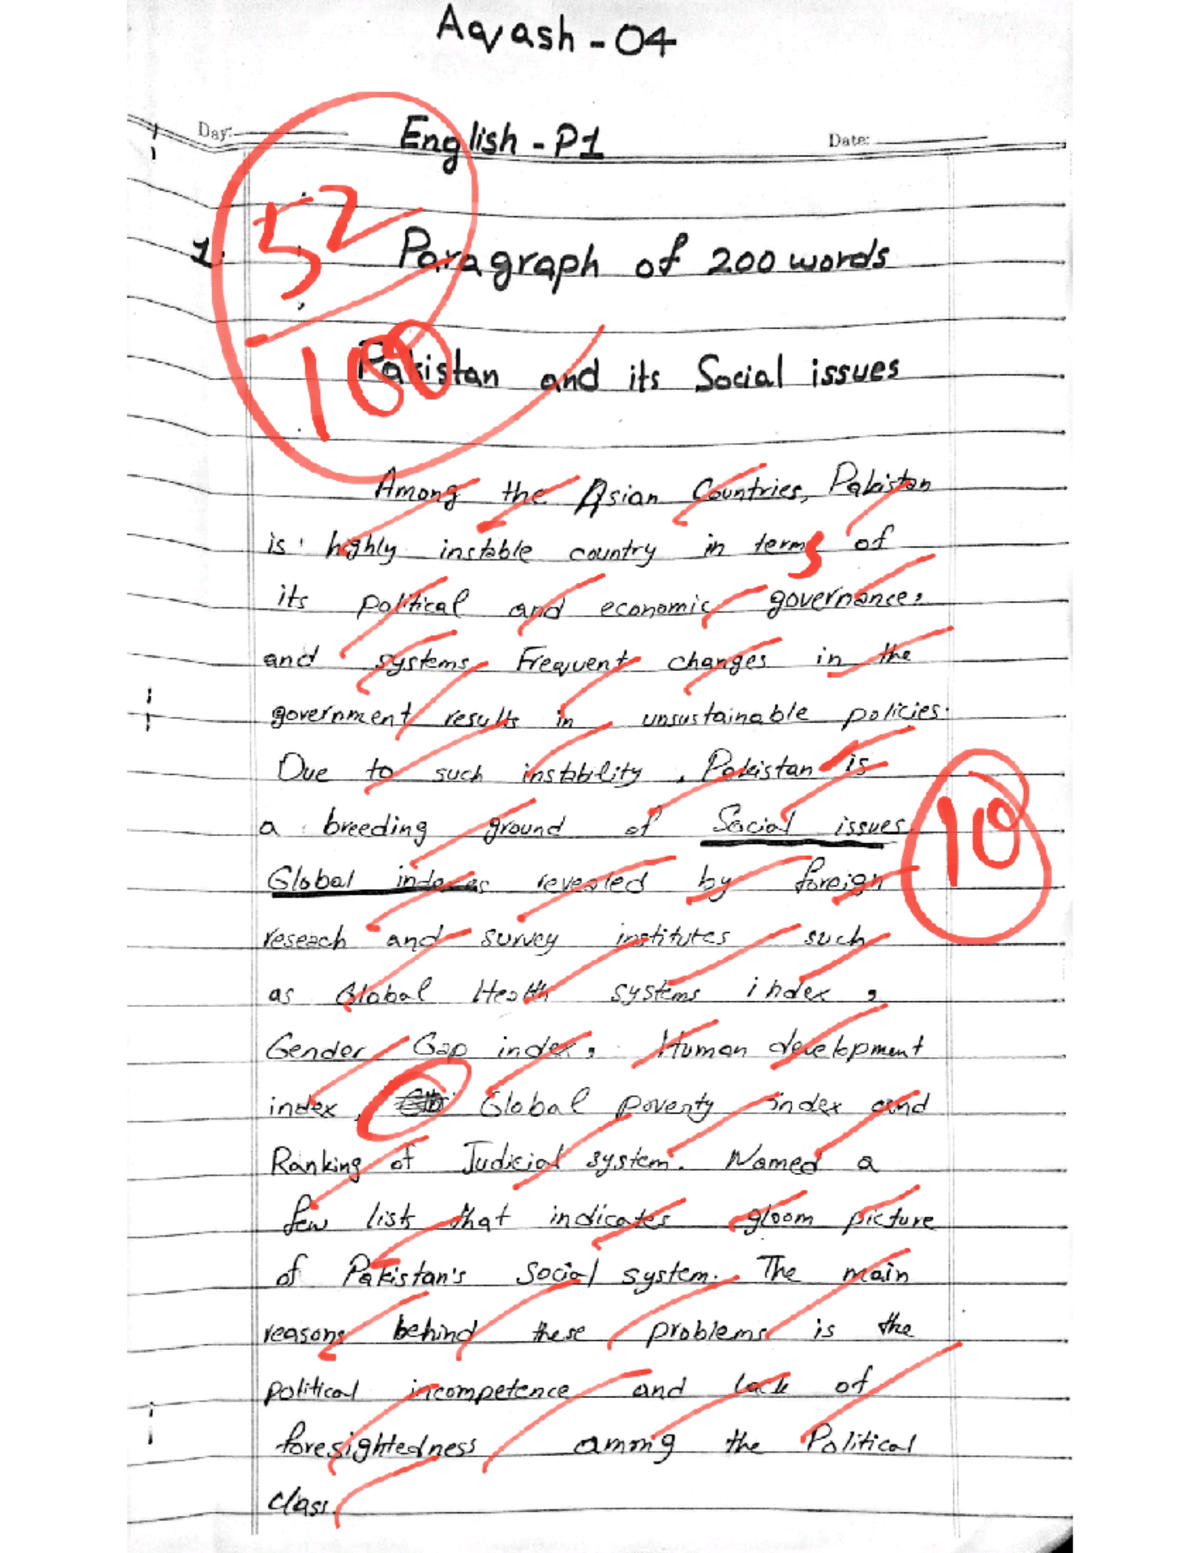 Aqvash - 04
Day:
English - P1
Date:
52/100
1. Paragraph of 200 words
Pakistan and its Social issues
Among the Asian Countries, Pakistan
is highly instable country in terms of
its political and economic governance,
and systems Frequent changes in the
government results in unsustainable policies.
Due to such instability, Pakistan is
a breeding ground of Social issues
10
Global indexes revealed by foreign
reseach and survey institutes such
as Global Health systems index,
Gender Gap index, Human development
index, Global poverty index and
Ranking of Judicial system. Named a
few lists that indicates gloom picture
of Pakistan's Social system. The main
reasons behind these problems is the
political incompetence and lack of
foresightedness among the Political
class.